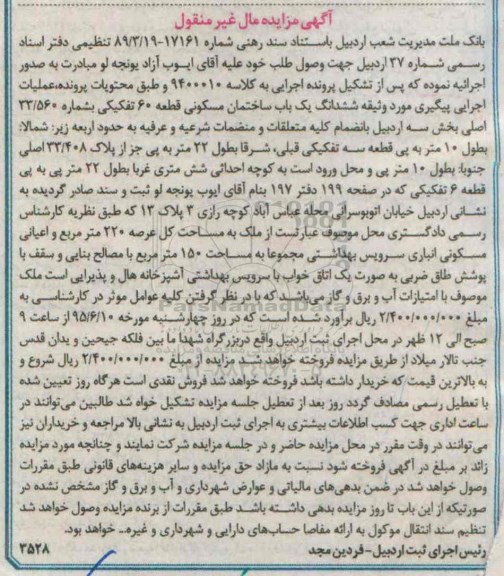 آگهی مزایده مال غیر منقول
بانک ملت مدیریت شعب اردبیل باستناد سند رهنی شماره ۱۷۱۶۱-۸۹/۳/۱۹ تنظیمی دفتر اسناد
رسمی شماره ۲۷ اردبیل جهت وصول طلب خود علیه آقای ایوب آزاد یونجه لو مبادرت به صدور
اجرائیه نموده که پس از تشکیل پرونده اجرایی به کلاسه ۹۴۰۰۰۱۰ و طبق محتویات پرونده،عملیات
اجرایی پیگیری مورد وثیقه ششدانگ یک باب ساختمان مسکونی قطعه ۶۰ تفکیکی بشماره ۳۳/۵۶۰
اصلی بخش سه اردبیل بانضمام کلیه متعلقات و منضمات شرعیه و عرفیه به حدود اربعه زیر: شمالا:
بطول ۱۰ متر به پی قطعه سه تفکیکی قبلی، شرقا بطول ۲۲ متر به پی جز از پلاک ۳۳/۴۰۸ اصلی
جنوبا: بطول ۱۰ متر پی و محل ورود است به کوچه احداثی شش متری غربا بطول ۲۲ متر پی به پی
قطعه ۶ تفکیکی که در صفحه ۱۹۹ دفتر ۱۹۷ بنام آقای ایوب یونجه لو ثبت و سند صادر گردیده به
نشانی اردبیل خیابان اتوبوسرانی محله عباس آباد کوچه رازی ۳ پلاک ۱۳ که طبق نظریه کارشناس
رسمی دادگستری محل موصوف عبارتست از ملک به مساحت کل عرصه ۲۲۰ متر مربع و اعیانی
مسکونی انباری سرویس بهداشتی مجموعا به مساحت ۱۵۰ متر مربع با مصالح بنایی و سقف با
پوشش طاق ضربی به صورت یک اتاق خواب با سرویس بهداشتی آشپزخانه هال و پذیرایی است ملک
موصوف با امتیازات آب و برق و گاز می‌باشد که با در نظر گرفتن کلیه عوامل موثر در کارشناسی به
مبلغ ۲/۴۰۰/۰۰۰/۰۰۰ ریال برآورد شده است که در روز چهارشنبه مورخه ۹۵/۶/۱۰ از ساعت ۹
صبح الی ۱۲ ظهر در محل اجرای ثبت اردبیل واقع دربزرگراه شهدا ما بین فلکه جیحین و یدان قدس
جنب تالار میلاد از طریق مزایده فروخته خواهد شد. مزایده از مبلغ ۲/۴۰۰/۰۰۰/۰۰۰ ریال شروع و
به بالاترین قیمت که خریدار داشته باشد فروخته خواهد شد فروش نقدی است هرگاه روز تعیین شده
با تعطیل رسمی مصادف گردد روز بعد از تعطیل جلسه مزایده تشکیل خواه شد طالبین می‌توانند در
ساعت اداری جهت کسب اطلاعات بیشتری به اجرای ثبت اردبیل به نشانی بالا مراجعه و خریداران نیز
می‌توانند در وقت مقرر در محل مزایده حاضر و در جلسه مزایده شرکت نمایند و چنانچه مورد مزایده
زائد بر مبلغ در آگهی فروخته شود نسبت به مازاد حق مزایده و سایر هزینه‌های قانونی طبق مقررات
وصول خواهد شد در ضمن بدهی‌های مالیاتی و عوارض شهرداری و آب و برق و گاز مشخص نشده در
صورتیکه از این باب تا روز مزایده بدهی داشته باشد طبق مقررات از برنده مزایده وصول خواهد شد
تنظیم سند انتقال موکول به ارائه مفاصا حساب‌های دارایی و شهرداری و غیره... خواهد بود.
رئیس اجرای ثبت اردبیل-فردین مجد ۳۵۲۸